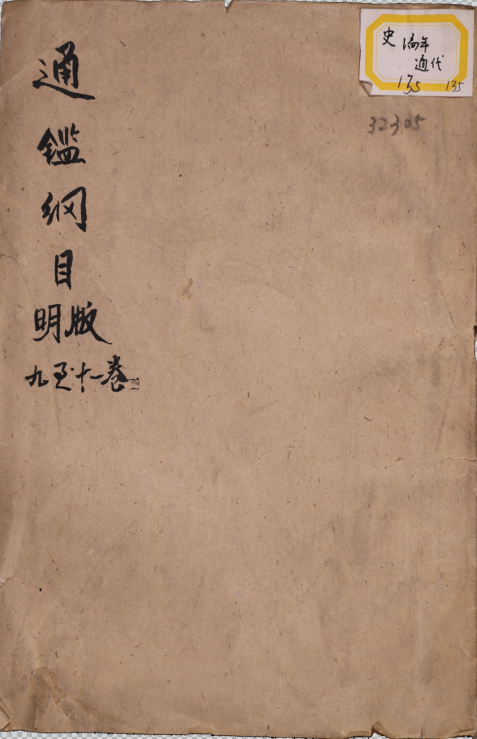 通鑑綱目
明版
九至十一卷
史 编年
通代
135 135
32305